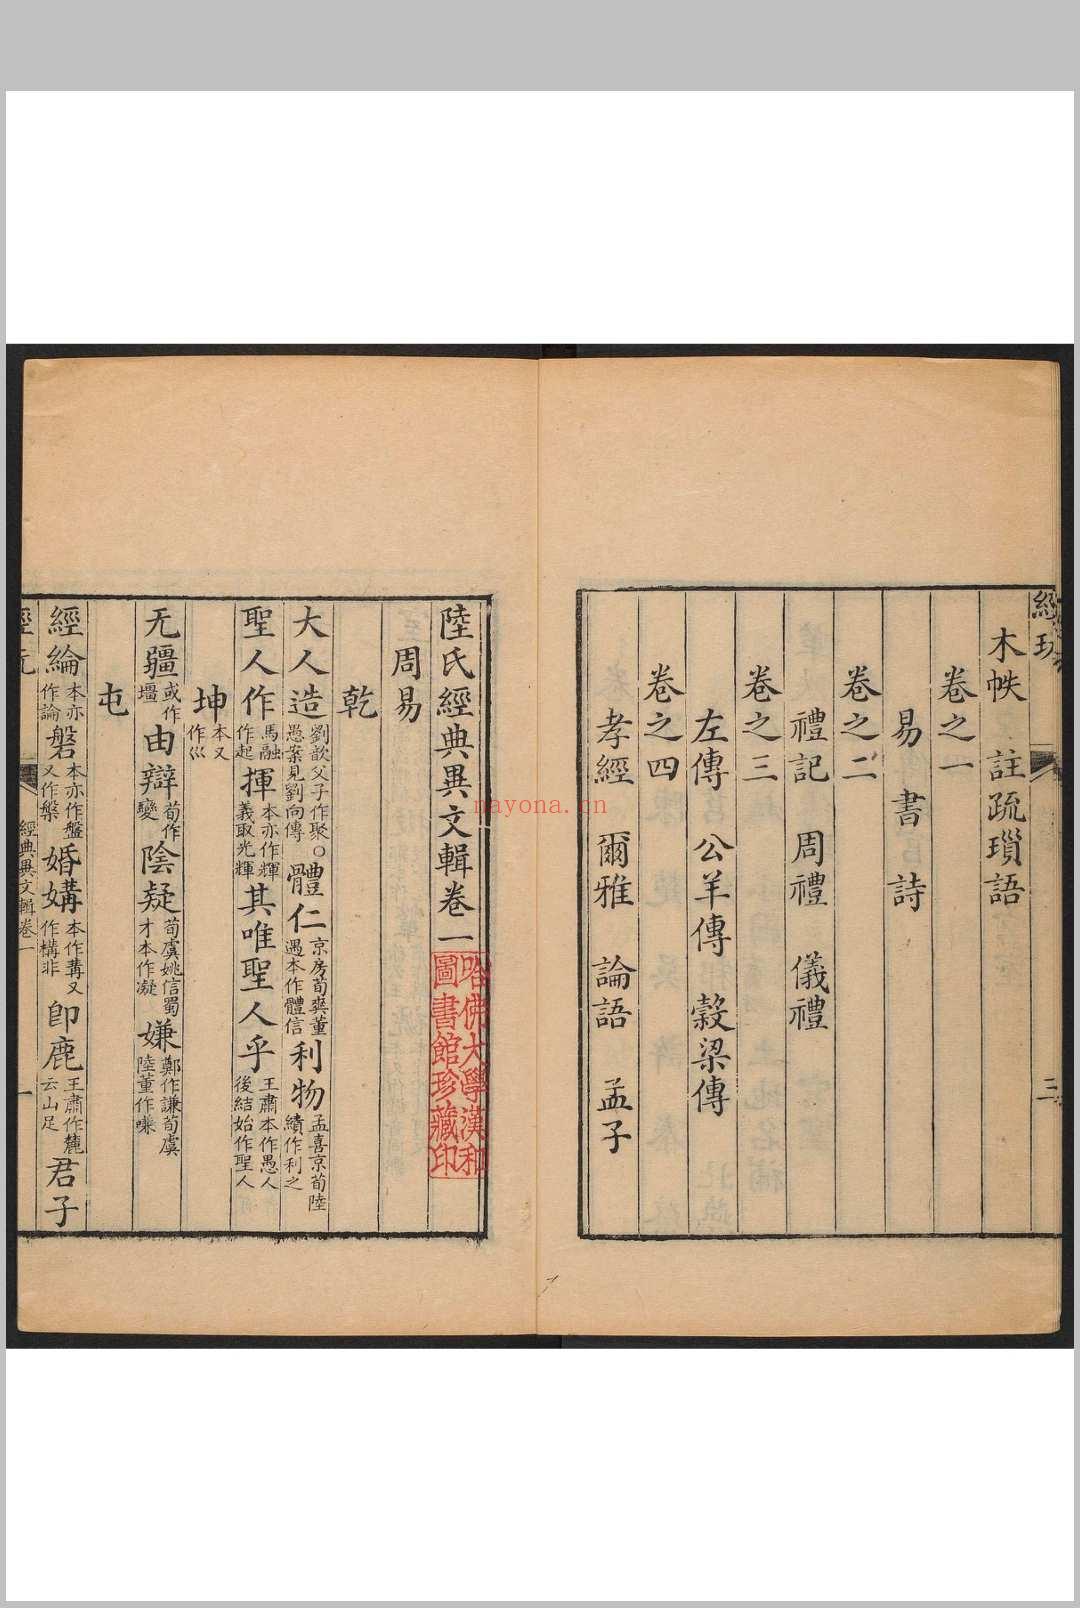 經玩
三
木帙 註疏瑣語
卷之一
易 書 詩
卷之二
禮記 周禮 儀禮
卷之三
左傳 公羊傳 穀梁傳
卷之四
孝經 爾雅 論語 孟子
陸氏經典異文輯卷一
哈佛大學漢和
圖書館珍藏印
周易
乾
大人造劉歆父子作聚○愚案見劉向傳體仁京房荀爽董遇本作體信利物孟喜京荀陸績作利之
聖人作馬融作起揮本亦作輝義取光輝其唯聖人乎王肅本作愚人後結始作聖人
坤本又作巛
无疆或作壃由辯荀作變陰疑荀虞姚信蜀才本作凝嫌鄭作謙荀虞陸董作嗛
屯
經綸本亦作論磐本亦作盤又作槃婚媾本作冓又作構非即鹿王肅作麓云山足君子
經玩
經典異文輯卷一
一
nayona.cn